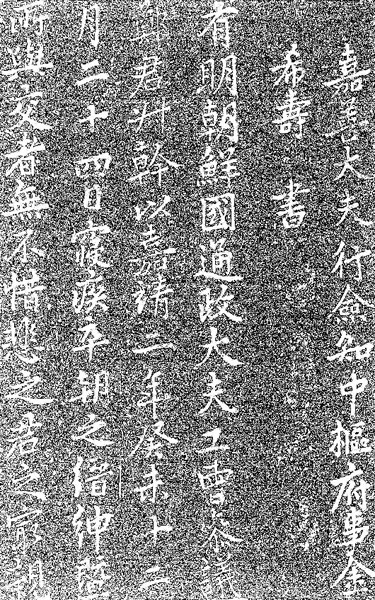 嘉善大夫行僉知中樞府事金
希壽 書
有明朝鮮國通政大夫工曹參議
君 幹以嘉靖二年癸未十二
月二十四日寢疾卒朝之縉紳曁
所與交者無不惜悲之君之家